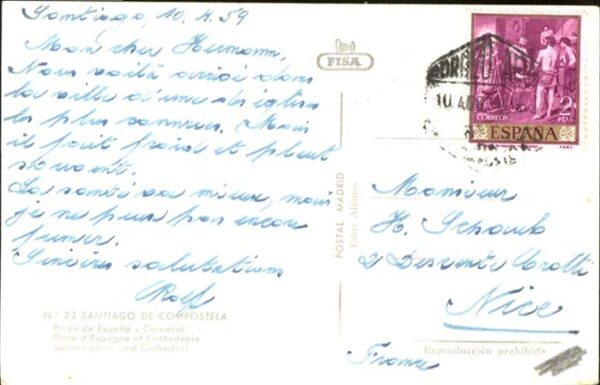 Santiago, 10.4.59
Mon cher Hermann,
Nous voilà arrivé dans
la ville d'une des églises
les plus connues. Mais
il fait froid et pleut
souvent.
La santé va mieux, mais
je ne peux pas encore
fumer.
Sincères salutations
Rolf
N.º 23 SANTIAGO DE COMPOSTELA
Plaza de España y Catedral
Place d'Espagne et Cathédrale
Spain square and Cathedral
FISA
POSTAL MADRID
Foto: Alfonso
CORREOS
2
PTAS
ESPAÑA
10 ABR
Monsieur
H. Schaub
2 Descente
Nice
Reproducción prohibida
France